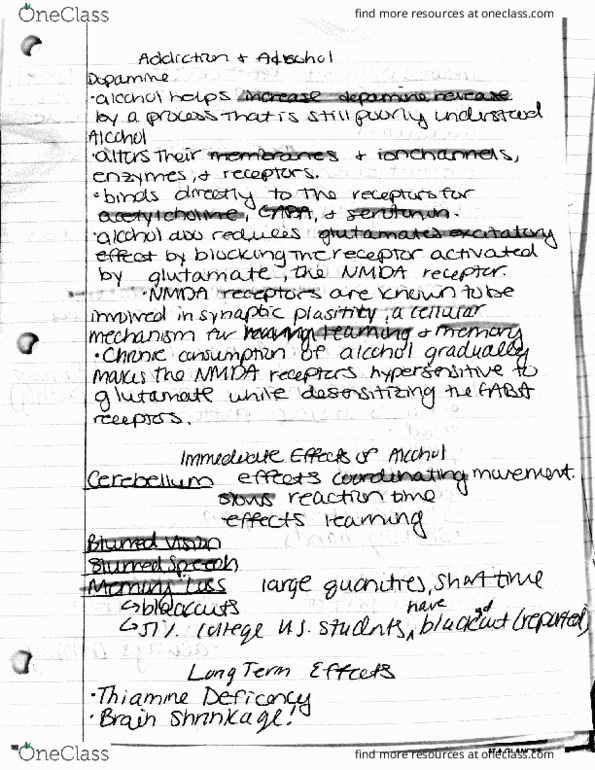 OneClass
find more resources at oneclass.com
Addiction + Adlochol
Dopamine
·alcohol helps increase dopamine release
by a process that is still poorly understood
Alcohol
·alters their membranes + ionchannels,
enzymes, + receptors.
·binds directly to the receptors for
acetylcholine, GABA, + serotonin.
·alcohol also reduces glutamates excitatory
effect by blocking the receptor activated
by glutamate, the NMDA receptor.
·NMDA receptors are known to be
involved in synaptic plastitity, a cellular
mechanism for learning + memory
·Chronic consumption of alcohol gradually
makes the NMDA receptors hypersensitive to
glutamate while desensitizing the GABA
receptors.
Immediate Effects of Alcohol
Cerebellum effects coordinating movement.
slows reaction time
effects learning
Blurred Vision
Slurred Speech
Memory Loss large quanities, short time
↳blackouts
↳51% college U.S. students have blackout (reported)
Long Term Effects
·Thiamine Deficency
·Brain Shrinkage!
OneClass
find more resources at oneclass.com